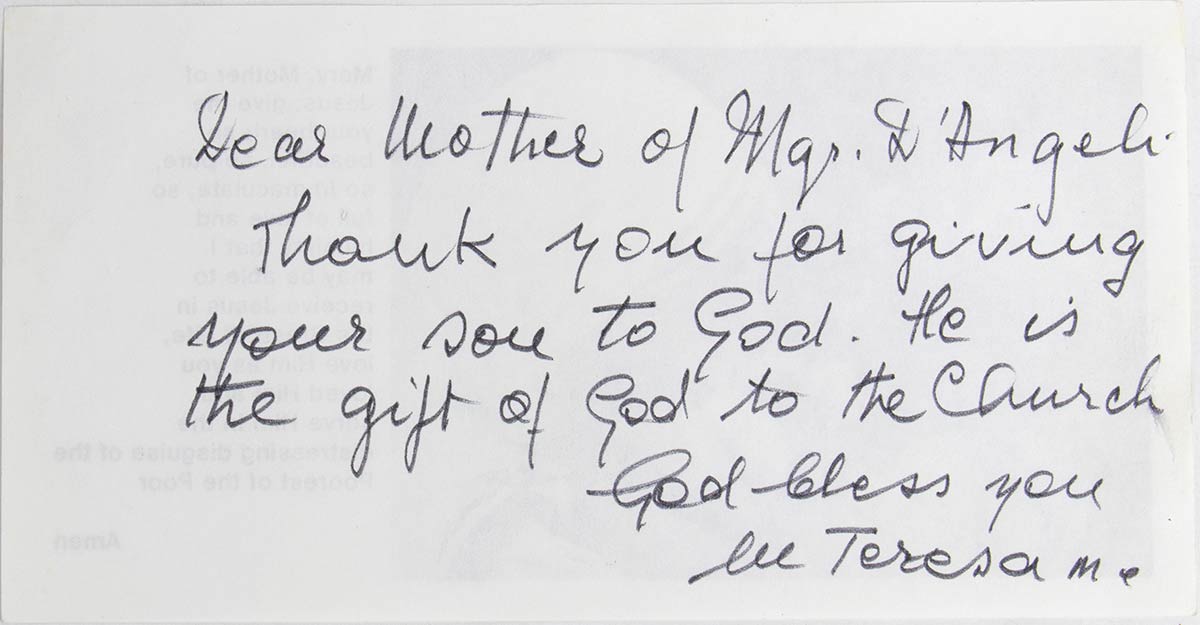 Dear Mother of Mgr. D'Angeli
Thank you for giving
your son to God. He is
the gift of God to the Church
God bless you
M Teresa m.c
Mary, Mother of
Jesus, give
beautiful, so pure,
so immaculate, so
full of love and
that I
may be able to
receive Jesus in
love Him as you
loved Him and
serve Him in the
distressing disguise of the
Poorest of the Poor
Amen